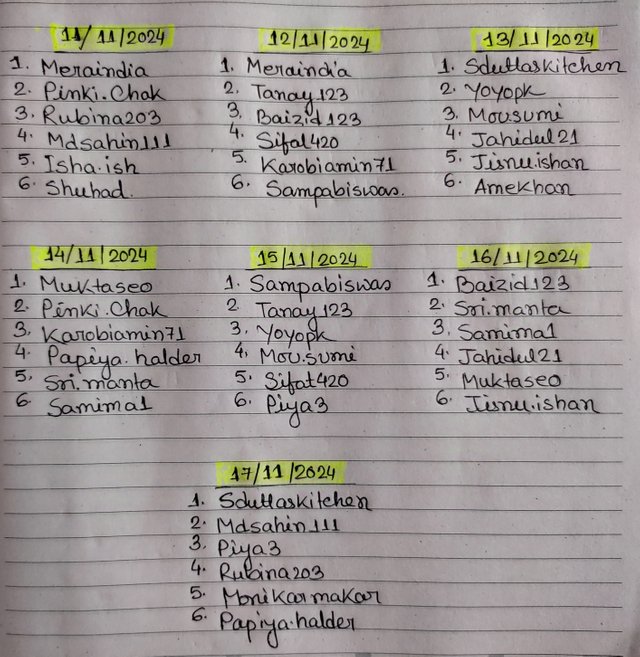 11/11/2024
1. Meraindia
2. Pinki.Chak
3. Rubina203
4. Mdsahin111
5. Isha.ish
6. Shuhad.
12/11/2024
1. Meraindia
2. Tanay123
3. Baizid123
4. Sifat420
5. Karobiamin71
6. Sampabiswas.
13/11/2024
1. Sduttaskitchen
2. Yoyopk
3. Mou.sumi
4. Jahidul21
5. Jisnu.ishan
6. Amekhan
14/11/2024
1. Muktaseo
2. Pinki.Chak
3. Karobiamin71
4. Papiya.halder
5. Sri.manta
6. Samima1
15/11/2024
1. Sampabiswas
2. Tanay123
3. Yoyopk
4. Mou.sumi
5. Sifat420
6. Piya3
16/11/2024
1. Baizid123
2. Sri.manta
3. Samima1
4. Jahidul21
5. Muktaseo
6. Jisnu.ishan
17/11/2024
1. Sduttaskitchen
2. Mdsahin111
3. Piya3
4. Rubina203
5. Monikarmakar
6. Papiya.halder